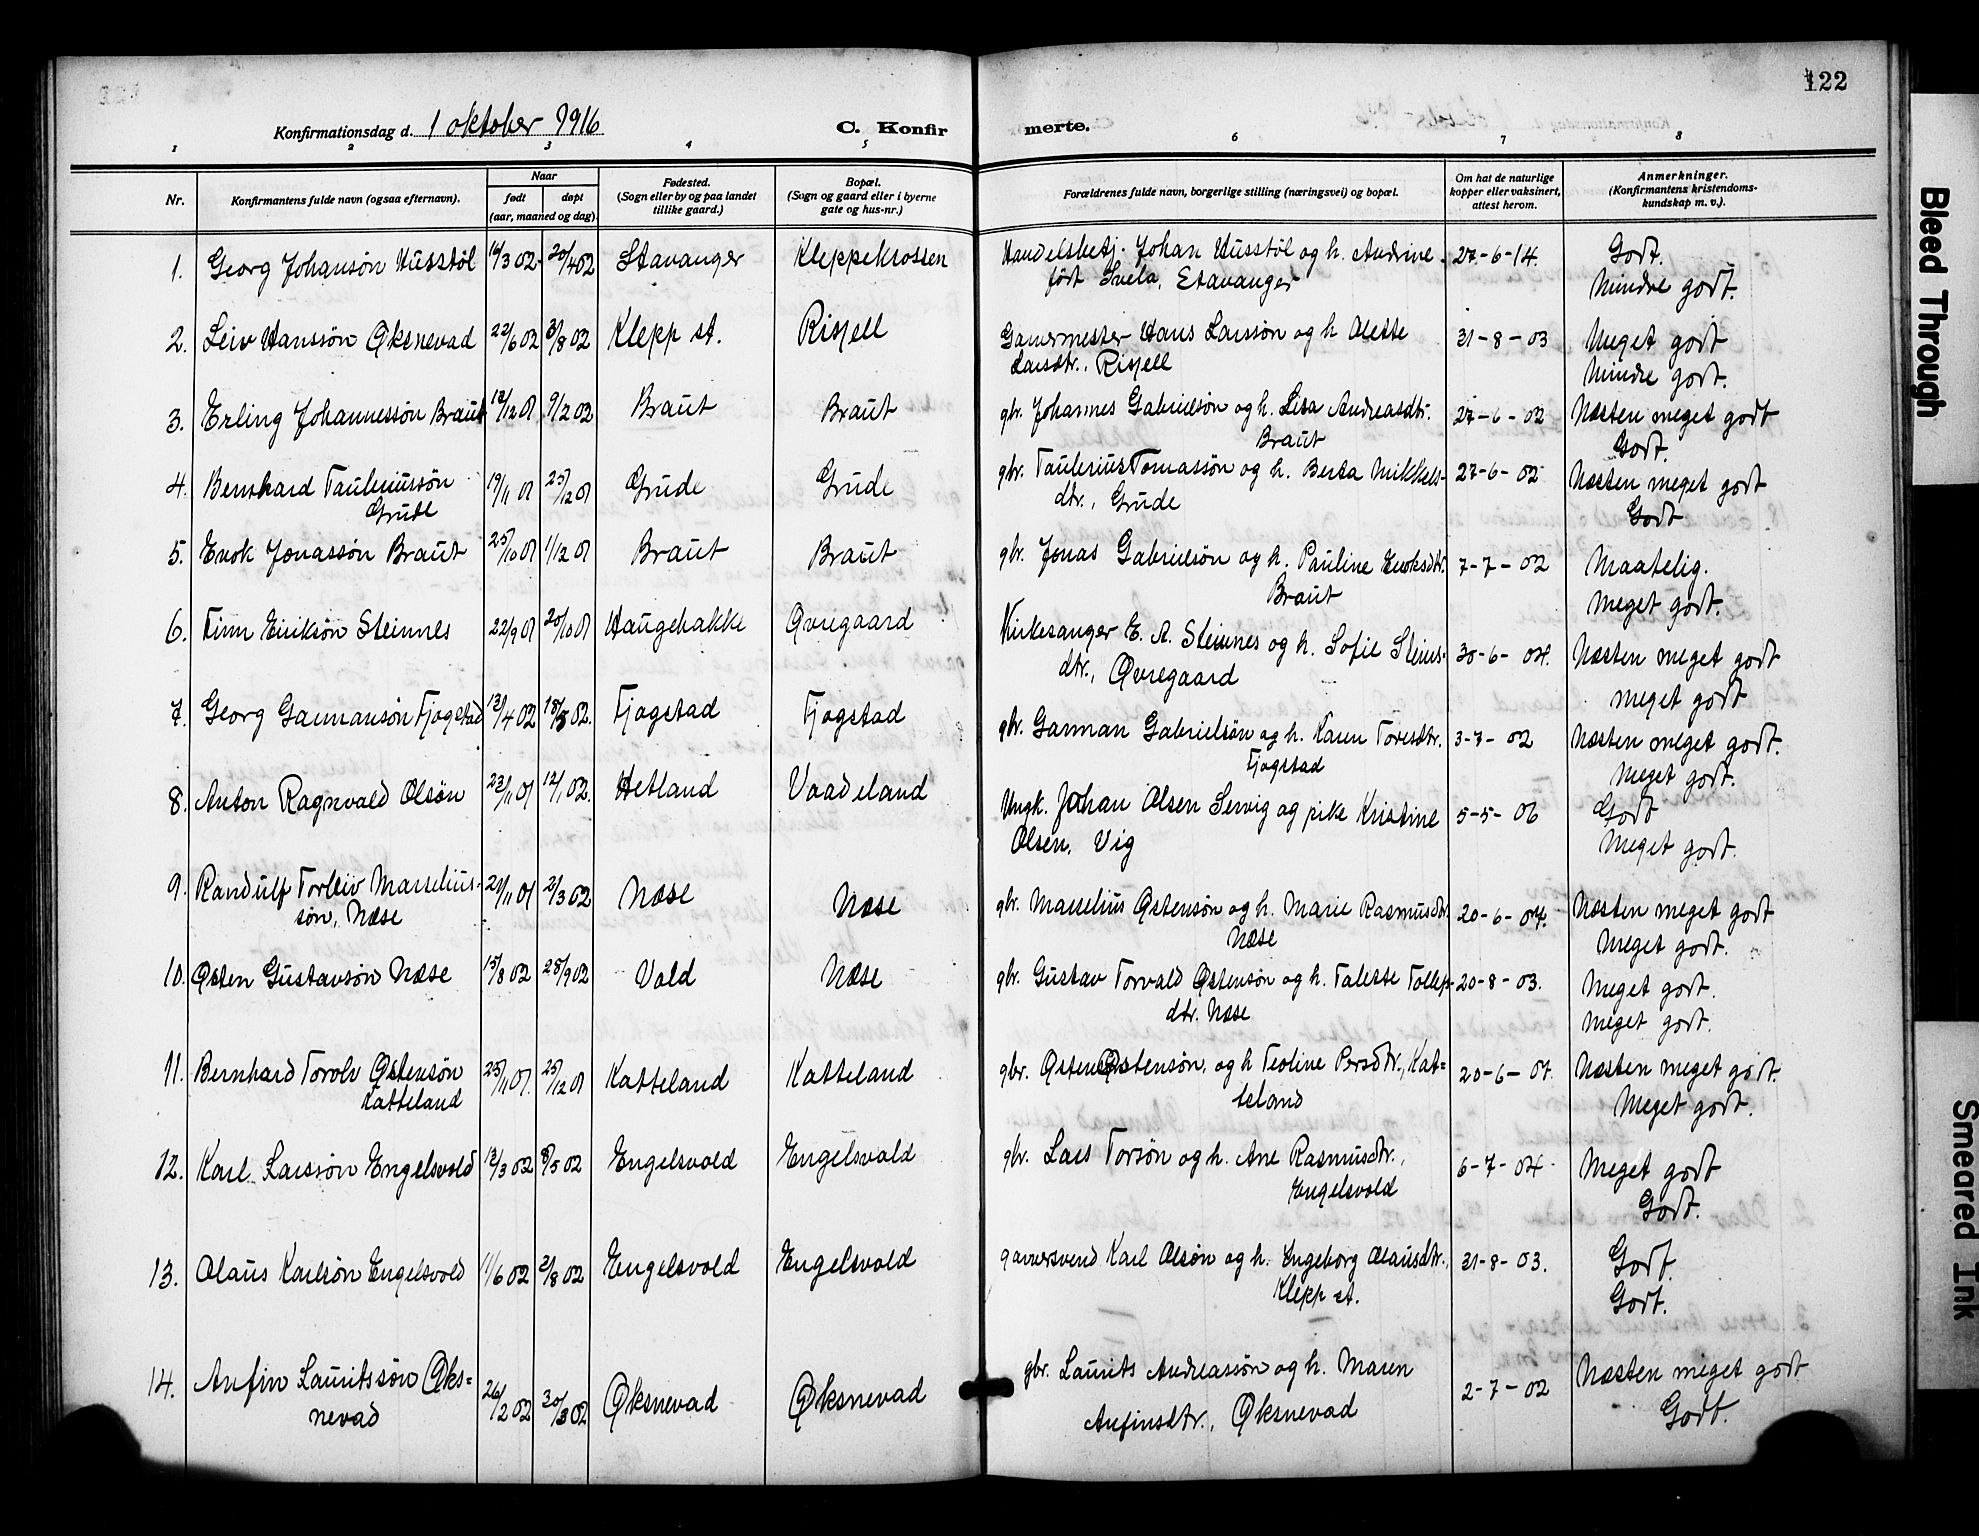 122
Konfirmationsdag d. 1 oktober 1916
C. Konfirmerte.
1 2 3 4 5 6 7 8
Nr. Konfirmantens fulde navn (ogsaa efternavn). Naar født døpt (aar, maaned og dag). Fødested. (Sogn eller by og paa landet tillike gaard.) Bopæl. (Sogn og gaard eller i byerne gate og hus-nr.) Forældrenes fulde navn, borgerlige stilling (næringsvei) og bopæl. Om hat de naturlige kopper eller vaksinert, attest herom. Anmerkninger. (Konfirmantens kristendoms-kundskap m. v.).
1. Georg Johansøn Husstøl 14/3 02. 20/4 02 Stavanger Kleppekrossen Handelsbetj. Johan Husstøl og h. Andrine 27-6-14. Godt.
født Svela, Stavanger Mindre godt.
2. Leiv Hanssøn Øksnevad 22/6 02 3/8 02 Klepp st. Risjell Garvermester Hans Larssøn og h. Olette 31-8-03 Meget godt
Larsdtr., Risjell Mindre godt.
3. Erling Johannessøn Braut 12/12 01 9/2 02 Braut Braut gbr. Johannes Gabrielsøn og h. Lisa Andreasdtr. 27-6-02 Næsten meget godt
Braut Godt.
4. Bernhard Tauleriussøn 19/11 01 25/12 01 Grude Grude gbr. Taulerius Tomassøn og h. Berta Mikkels- 27-6-02 Næsten meget godt
Grude dtr., Grude Godt
5. Enok Jonassøn Braut 25/10 01 1/12 01 Braut Braut gbr. Jonas Gabrielsøn og h. Pauline Enoksdtr. 7-7-02 Maatelig.
Braut Meget godt.
6. Finn Eriksøn Steinnes 22/9 01 20/10 01 Haugehakke Øvregaard Kirkesanger E. A. Steinnes og h. Sofie Steins- 30-6-04. Næsten meget godt
dtr., Øvregaard meget godt
7. Georg Garmansøn Fjogstad 12/4 02 18/5 02. Fjogstad Fjogstad gbr. Garman Gabrielsøn og h. Karen Toresdtr. 3-7-02 Næsten meget godt.
Fjogstad Meget godt.
8. Anton Ragnvald Olsøn 23/11 01 12/1 02. Hetland Vaadeland Ungk. Johan Olsen Servig og pike Kristine 5-5-06 Godt
Olsen, Vig Meget godt.
9. Randulf Torleiv Marselius- 21/11 01 2/3 02 Næse Næse gbr. Marselius Østensøn og h. Marie Rasmusdtr. 20-6-04. Næsten meget godt
søn, Næse Næse Meget godt.
10. Østen Gustavsøn Næse 15/8 02 28/9 02 Vold Næse gbr. Gustav Torvald Østensøn og h. Talette Tolleps- 20-8-03. Meget godt.
dtr. Næse meget godt.
11. Bernhard Torolv Østensøn 25/11 01. 25/12 01 Katteland Katteland gbr. Østen Østensøn, og h Teoline Persdtr., Kat= 20-6-07. Næsten meget godt.
Katteland teland Meget godt.
12. Karl Larssøn Engelsvold 12/3 02 8/5 02 Engelsvold Engelsvold gbr. Lars Torsøn og h. Ane Rasmusdtr., 6-7-04. Meget godt
Engelsvold Godt.
13. Olaus Karlsøn Engelsvold 11/6 02 2/8 02 Engelsvold Engelsvold garversvend Karl Olsøn og h. Engeborg Olausdtr., 31-8-03. Godt.
Klepp st. Godt.
14. Anfin Lauritssøn Øks= 26/2 02 30/3 02 Øksnevad Øksnevad gbr. Laurits Andreassøn og h. Maren 2-7-02 Næsten meget godt
nevad Anfinsdtr., Øksnevad Godt.
Bleed Through
Smeared Ink